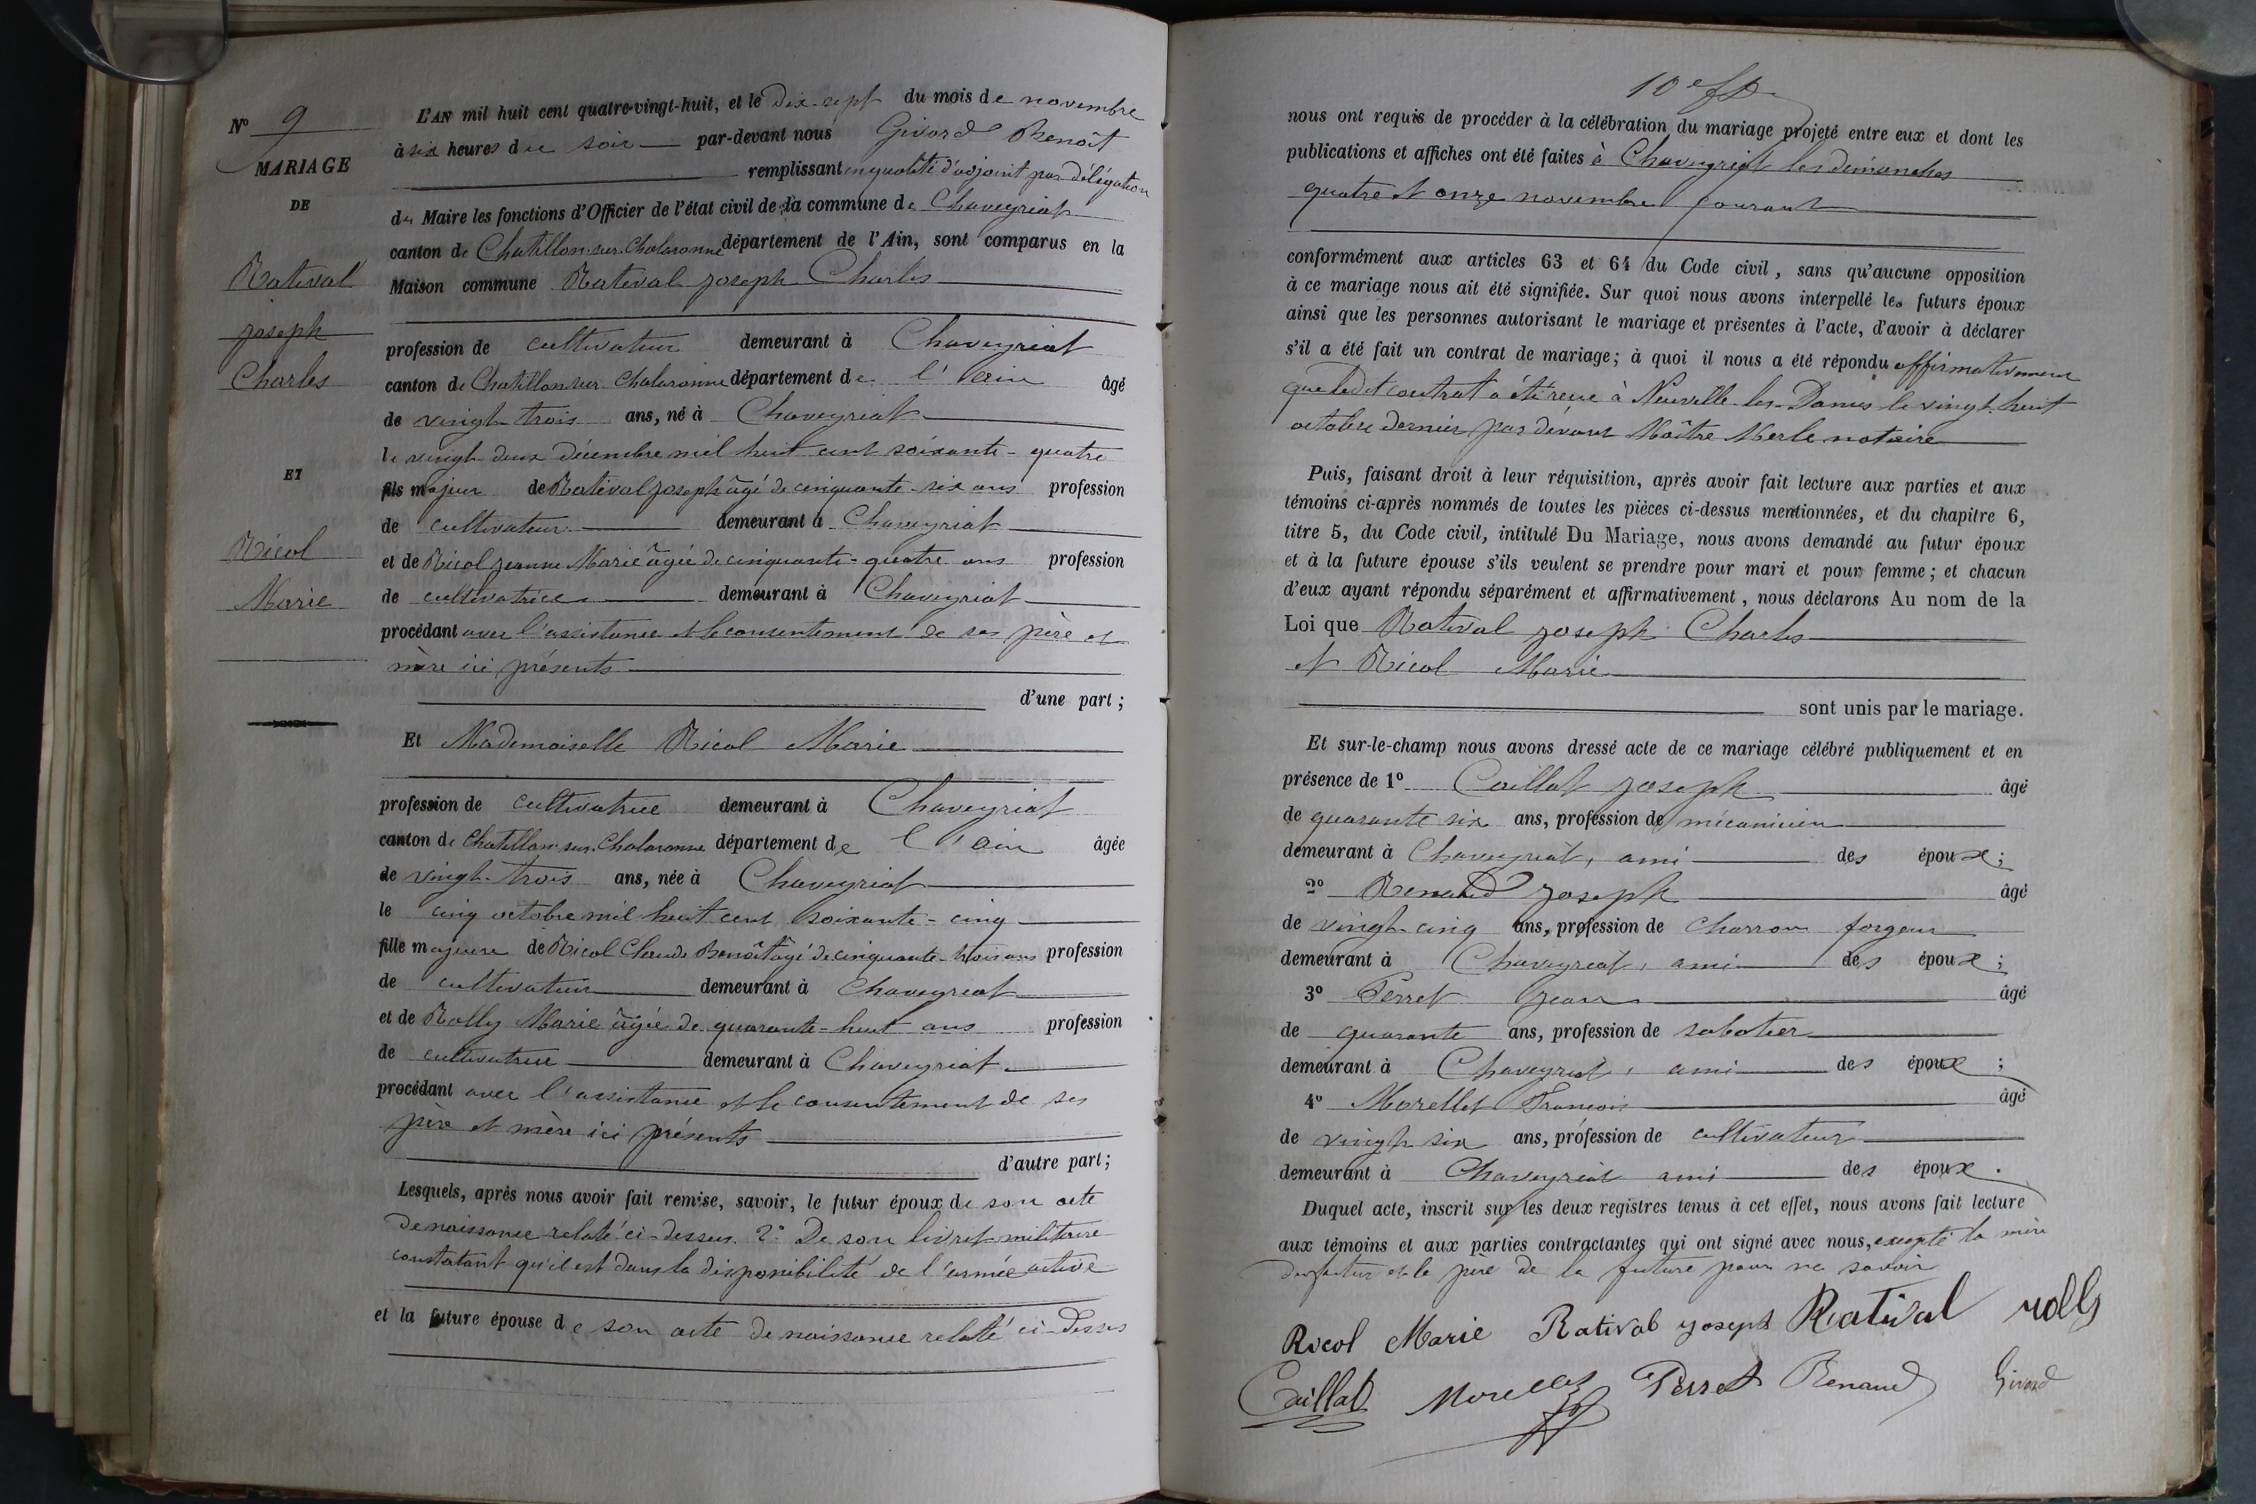 N° 9
MARIAGE
DE
Rativat
Joseph
Charles
ET
Nicol
Marie
L'AN mil huit cent quatre-vingt-huit, et le Dix-sept du mois de novembre
à six heures du soir par-devant nous Givord Benoît
remplissant en qualité d'adjoint par délégation
du Maire les fonctions d'Officier de l'état civil de la commune de Chaveyriat
canton de Chatillon-sur-Chalaronne département de l'Ain, sont comparus en la
Maison commune Rativat Joseph Charles
profession de cultivateur demeurant à Chaveyriat
canton de Chatillon sur Chalaronne département de l'ain âgé
de vingt-trois ans, né à Chaveyriat
le vingt-deux Décembre mil huit cent soixante-quatre
fils majeur de Rativat Joseph âgé de cinquante-six ans profession
de cultivateur demeurant à Chaveyriat
et de Nicol Jeanne Marie âgée de cinquante-quatre ans profession
de cultivatrice demeurant à Chaveyriat
procédant avec l'assistance et le consentement de ses père et
mère ici présents
d'une part ;
Et Mademoiselle Nicol Marie
profession de cultivatrice demeurant à Chaveyriat
canton de Chatillon-sur-Chalaronne département de l'ain âgée
de vingt-trois ans, née à Chaveyriat
le cinq octobre mil huit cent soixante-cinq
fille majeure de Nicol Claude Benoît âgé de cinquante-trois ans profession
de cultivateur demeurant à Chaveyriat
et de Rolly Marie âgée de quarante-huit ans profession
de cultivatrice demeurant à Chaveyriat
procédant avec l'assistance et le consentement de ses
père et mère ici présents
d'autre part ;
Lesquels, après nous avoir fait remise, savoir, le futur époux de son acte
de naissance relaté ci-dessus. 2° De son livret militaire
constatant qu'il est dans la disponibilité de l'armée active
et la future épouse de son acte de naissance relaté ci-dessus
10e
nous ont requis de procéder à la célébration du mariage projeté entre eux et dont les
publications et affiches ont été faites à Chaveyriat les dimanches
quatre et onze novembre courant
conformément aux articles 63 et 64 du Code civil, sans qu'aucune opposition
à ce mariage nous ait été signifiée. Sur quoi nous avons interpellé les futurs époux
ainsi que les personnes autorisant le mariage et présentes à l'acte, d'avoir à déclarer
s'il a été fait un contrat de mariage ; à quoi il nous a été répondu affirmativement
que ledit contrat a été reçu à Neuville-les-Dames le vingt-huit
octobre dernier par devant Maître Merle notaire
Puis, faisant droit à leur réquisition, après avoir fait lecture aux parties et aux
témoins ci-après nommés de toutes les pièces ci-dessus mentionnées, et du chapitre 6,
titre 5, du Code civil, intitulé Du Mariage, nous avons demandé au futur époux
et à la future épouse s'ils veulent se prendre pour mari et pour femme ; et chacun
d'eux ayant répondu séparément et affirmativement, nous déclarons Au nom de la
Loi que Rativat Joseph Charles
et Nicol Marie
sont unis par le mariage.
Et sur-le-champ nous avons dressé acte de ce mariage célébré publiquement et en
présence de 1° Caillat Joseph âgé
de quarante six ans, profession de mécanicien
demeurant à Chaveyriat, ami des époux ;
2° Renaud Joseph âgé
de vingt-cinq ans, profession de Charron forgeur
demeurant à Chaveyriat, ami des époux ;
3° Perret Jean âgé
de quarante ans, profession de sabotier
demeurant à Chaveyriat, ami des époux ;
4° Morellet François âgé
de vingt six ans, profession de cultivateur
demeurant à Chaveyriat ami des époux.
Duquel acte, inscrit sur les deux registres tenus à cet effet, nous avons fait lecture
aux témoins et aux parties contractantes qui ont signé avec nous, excepté la mère
du futur et le père de la future pour ne savoir
Nicol Marie Rativat Joseph Rativat rolly
Caillat Morellet Perret Renaud Givord